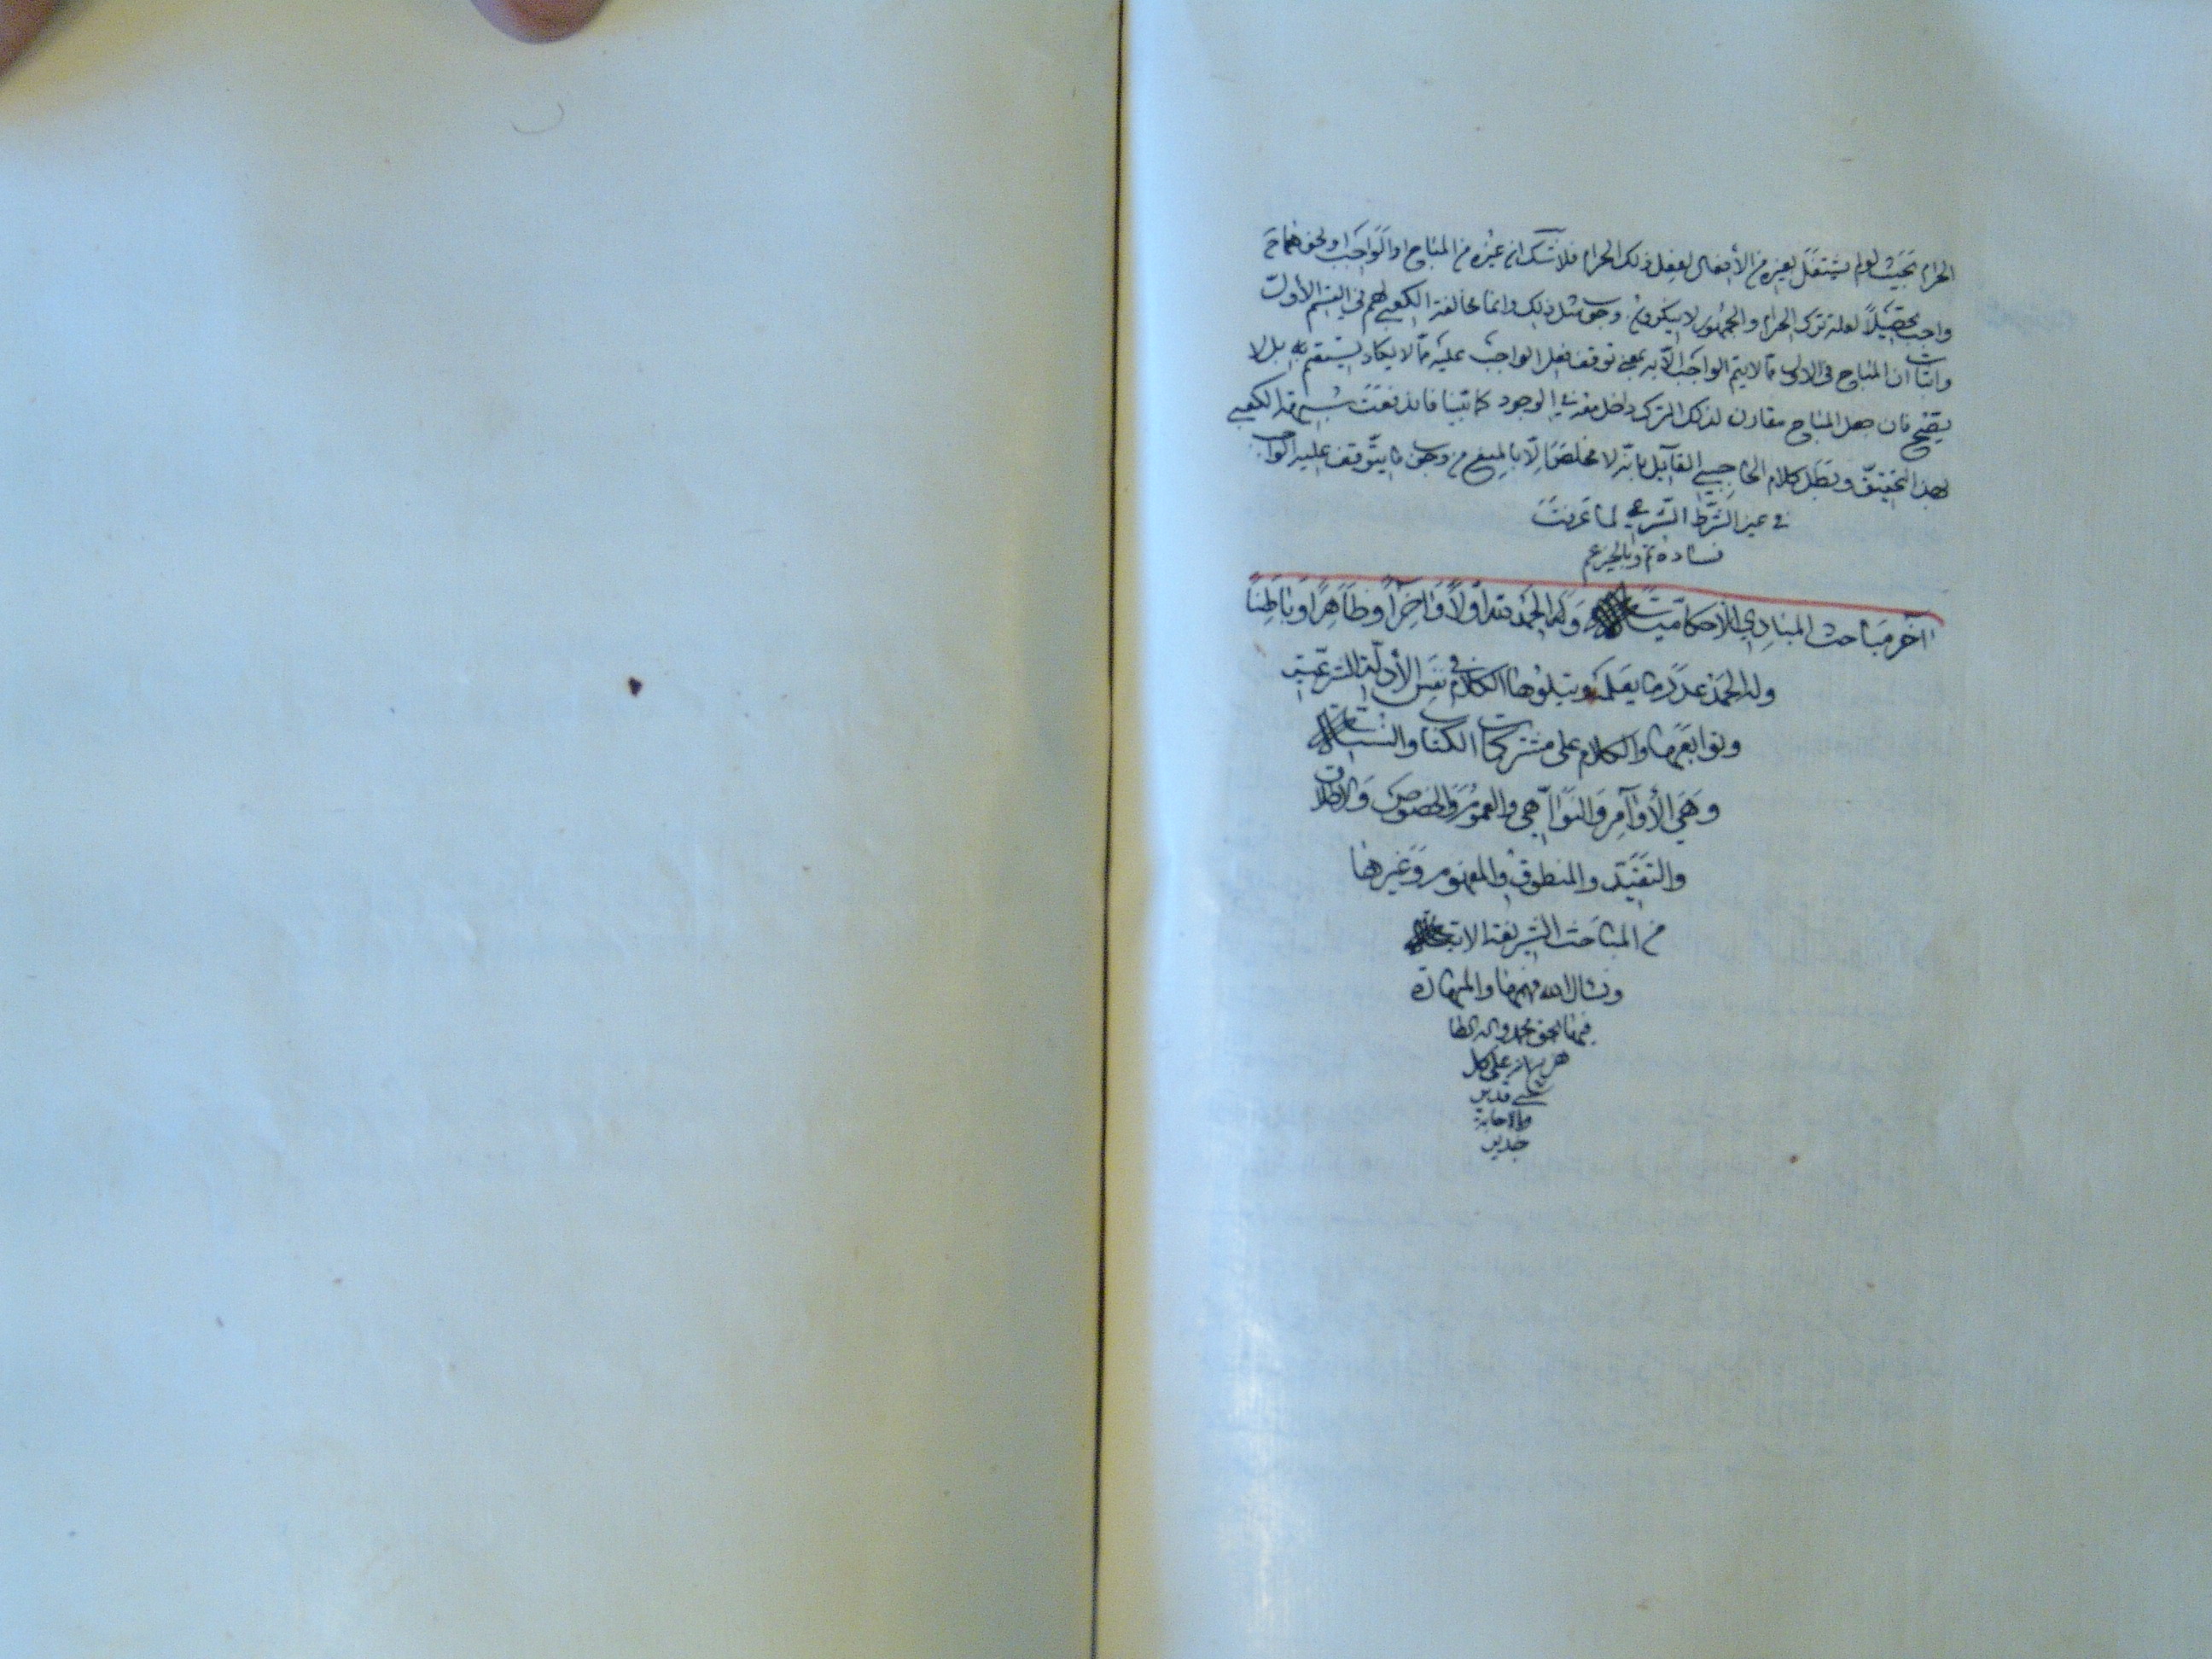 الحرام بحيث لو لم يشتغل بغيره من الأفعال لفعل ذلك الحرام فلا شك ان غيره من المباح او الواجب
واجب تحصيلاً لعلة ترك الحرام والجمهور لا ينكرون وجوب مثل ذلك وانما مخالفة الكعبي لهم في القسم الأول
واثبات ان المباح في الاول مما لا يتم الواجب الا به بمعنى توقف فعل الواجب عليه مما لا يكاد يستقيم له بل لا
يصح فان جعل المباح مقارن لذلك الترك داخل معه في الوجود كما بينا فاندفعت شبهة الكعبي
بهذا التحقيق وبطل كلام الحاجبي القائل بانه لا مخلص الا بالمنع من وجوب ما يتوقف عليه الواجب
في غير الشرط الشرعي لما عرفت
فساده تم وبالخير عم
آخر مباحث المبادي الاحكامية وله الحمد اولاً وآخراً وظاهراً وباطناً
وله الحمد عدد ما يعلمه ويتلوها الكلام في نفس الأدلة الشرعية
وتوابعها والكلام على مشتركات الكتاب والسنة
وهي الأوامر والنواهي والعموم والخصوص والاطلاق
والتقييد والمنطوق والمفهوم وغيرها
من المباحث الشريفة الاتية
ونسال الله فهمها والمهارة
فيها بحق محمد واله الطا
هرين انه على كل
شي قدير
وبالاجابة
جدير